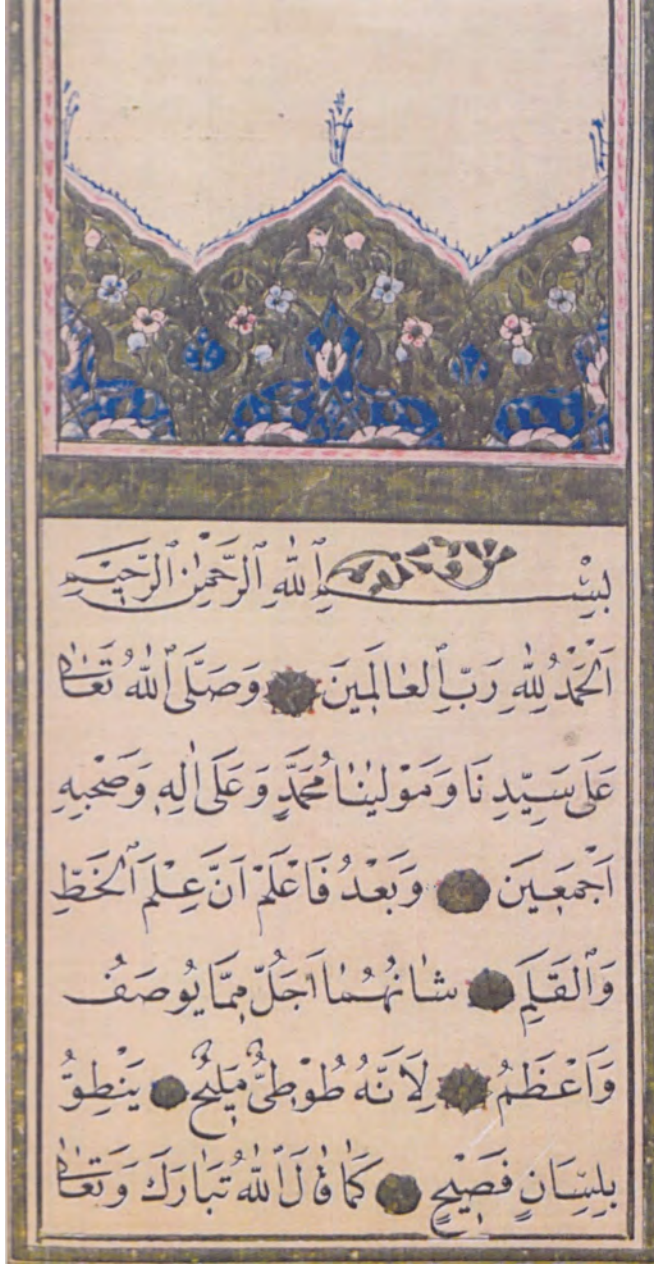 بِسْمِ ٱللّٰهِ ٱلرَّحْمٰنِ ٱلرَّحِيمِ
اَلْحَمْدُ لِلّٰهِ رَبِّ ٱلعَالَمِينَ وَصَلَّى ٱللّٰهُ تَعَالٰى
عَلٰى سَيِّدِنَا وَمَوْلٰينَا مُحَمَّدٍ وَعَلٰى اٰلِهِ وَصَحْبِهِ
اَجْمَعِينَ وَبَعْدُ فَاعْلَمْ اَنَّ عِلْمَ ٱلْخَطِّ
وَٱلْقَلَمِ شَانُهُمَا اَجَلُّ مِمَّا يُوصَفُ
وَاَعْظَمُ لِاَنَّهُ طُوْطِىٌّ مَلِيحٌ يَنْطِقُ
بِلِسَانٍ فَصِيْحٍ كَمَا قَالَ ٱللّٰهُ تَبَارَكَ وَتَعَالٰى